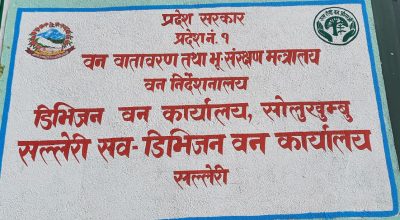 प्रदेश सरकार
प्रदेश नं. १
वन वातावरण तथा भू-संरक्षण मन्त्रालय
वन निर्देशनालय
डिभिजन वन कार्यालय, सोलुखुम्बु
सल्लेरी सव-डिभिजन वन कार्यालय
सल्लेरी